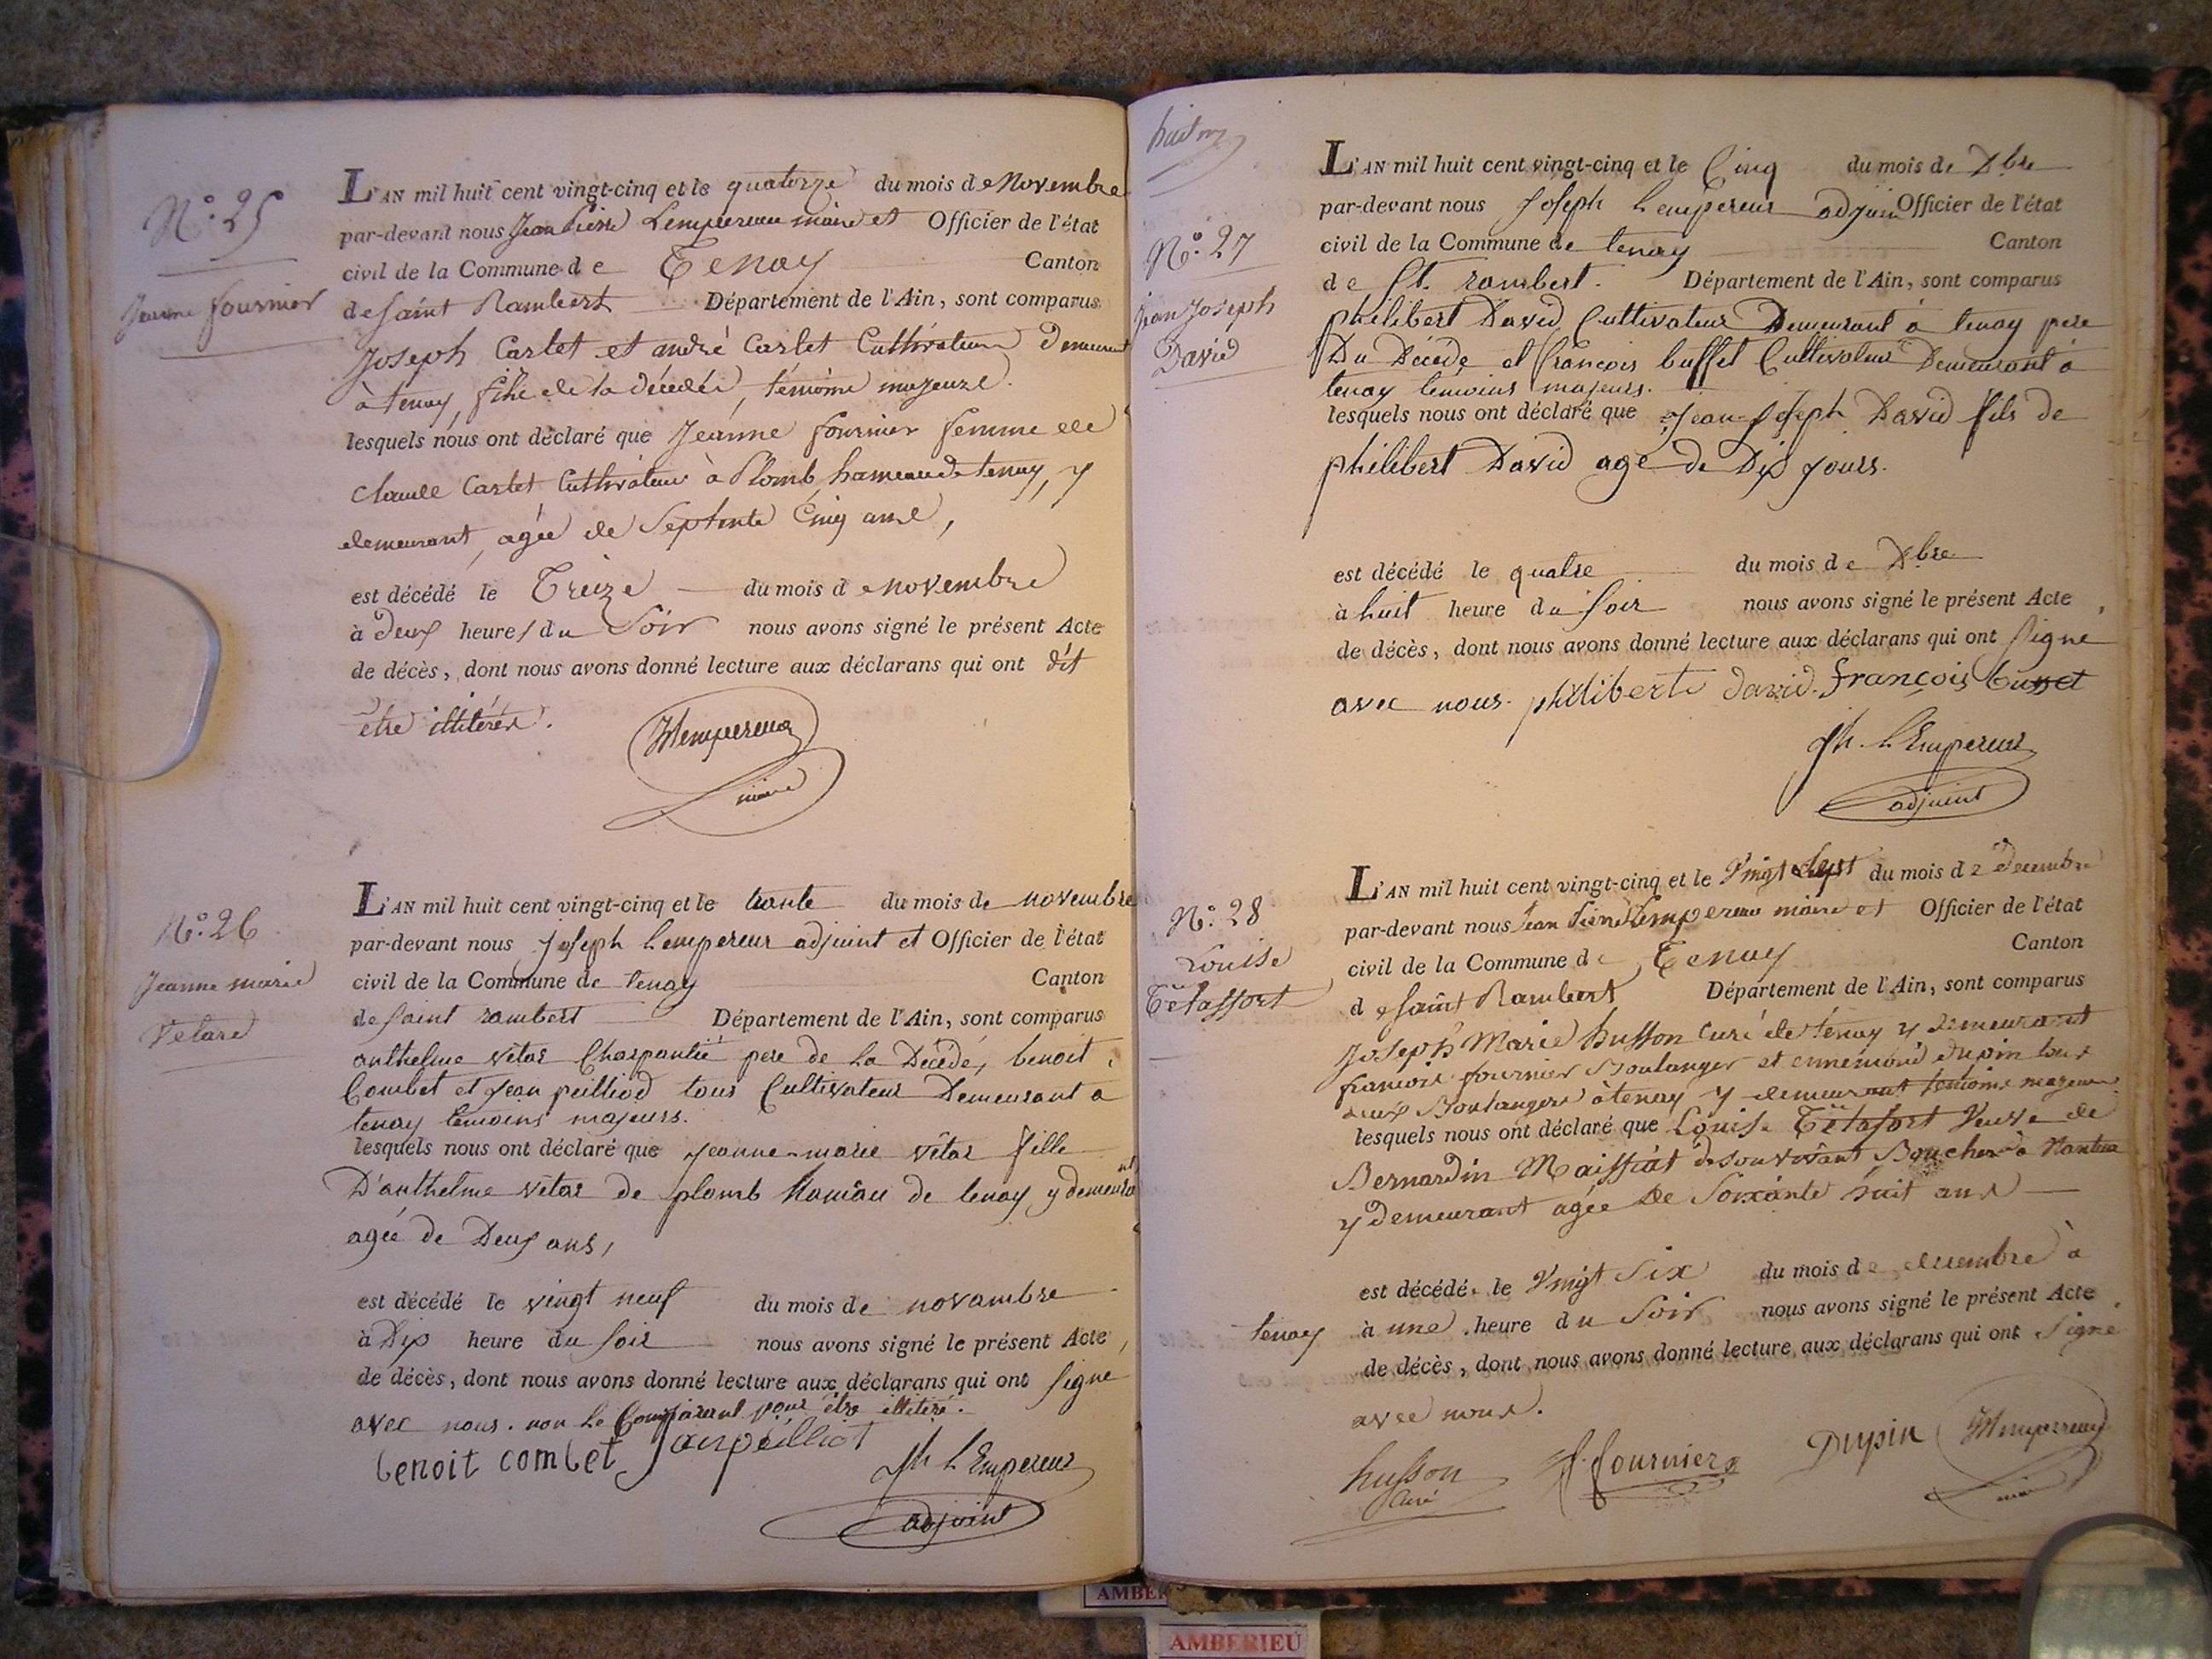 N.º 25
Jeanne fournier
L'AN mil huit cent vingt-cinq et le quatorze du mois de Novembre
par-devant nous Jean Pierre Lempereur maire et Officier de l'état
civil de la Commune de Tenay Canton
de Saint Rambert Département de l'Ain, sont comparus
Joseph Carlet et andré Carlet Cultivateurs demeurant
à tenay, fils de la décédée, témoins majeurs.
lesquels nous ont déclaré que Jeanne fournier femme de
Claude Carlet Cultivateur à Plomb, hameau de tenay, y
demeurant, agée de Septente Cinq ans,
est décédé le Treize du mois de novembre
à deux heures du Soir nous avons signé le présent Acte
de décès, dont nous avons donné lecture aux déclarans qui ont dit
être illitérés.
JPLempereur
maire
N.º 26
Jeanne marie
Vetard
L'AN mil huit cent vingt-cinq et le trante du mois de novembre
par-devant nous Joseph Lempereur adjoint et Officier de l'état
civil de la Commune de tenay Canton
de saint rambert Département de l'Ain, sont comparus
anthelme vétar Charpantié pere de la Décédé, benoit
Combet et Jean peilliod tous Cultivateur Demeurant a
tenay temoins majeurs.
lesquels nous ont déclaré que Jeanne-marie vétar fille
D'anthelme vétar de plomb hamau de tenay y demeurant
agée de Deux ans,
est décédé le vingt neuf du mois de novambre
à Dix heure du soir nous avons signé le présent Acte,
de décès, dont nous avons donné lecture aux déclarans qui ont signe
avec nous. non le Comparant pour être illitiré.
benoit combet Jean peilliot
Jh LEmpereur
adjoint
huit
N.º 27
jean Joseph
David
L'AN mil huit cent vingt-cinq et le Cinq du mois de Xbre
par-devant nous Joseph Lempereur adjoin Officier de l'état
civil de la Commune de tenay Canton
de St. rambert. Département de l'Ain, sont comparus
philibert David Cultivateur Demeurant à tenay pere
Du Décédé et françois buffet Cultivateur Demeurant à
tenay temoins majeurs.
lesquels nous ont déclaré que Jean-Joseph David fils de
philibert David agé de Dix jours.
est décédé le quatre du mois de Xbre
à huit heure du soir nous avons signé le présent Acte,
de décès, dont nous avons donné lecture aux déclarans qui ont signé
avec nous. philiberte david. françois buffet
Jh. LEmpereur
adjoint
N.º 28
Louise
Tétaffort
L'AN mil huit cent vingt-cinq et le Vingt Sept du mois de Decembre
par-devant nous Jean Pierre Lempereur maire et Officier de l'état
civil de la Commune de Tenay Canton
de saint Rambert Département de l'Ain, sont comparus
Joseph Marie husson Curé de tenay y demeurant
francois fournier Boulanger et ennemond dupin tous
deux Boulangers à tenay y demeurant temoins majeurs
lesquels nous ont déclaré que Louise Tétafort Veuve de
Bernardin Maissiat de son vivant Boucher à Nantua
y demeurant agée de Soixante huit ans
est décédé le Vingt Six du mois de decembre à
tenay à une heure du Soir nous avons signé le présent Acte
de décès, dont nous avons donné lecture aux déclarans qui ont signé
avec nous.
husson
Curé
f. fournier
Dupin
JPLempereur
maire
AMBERIEU